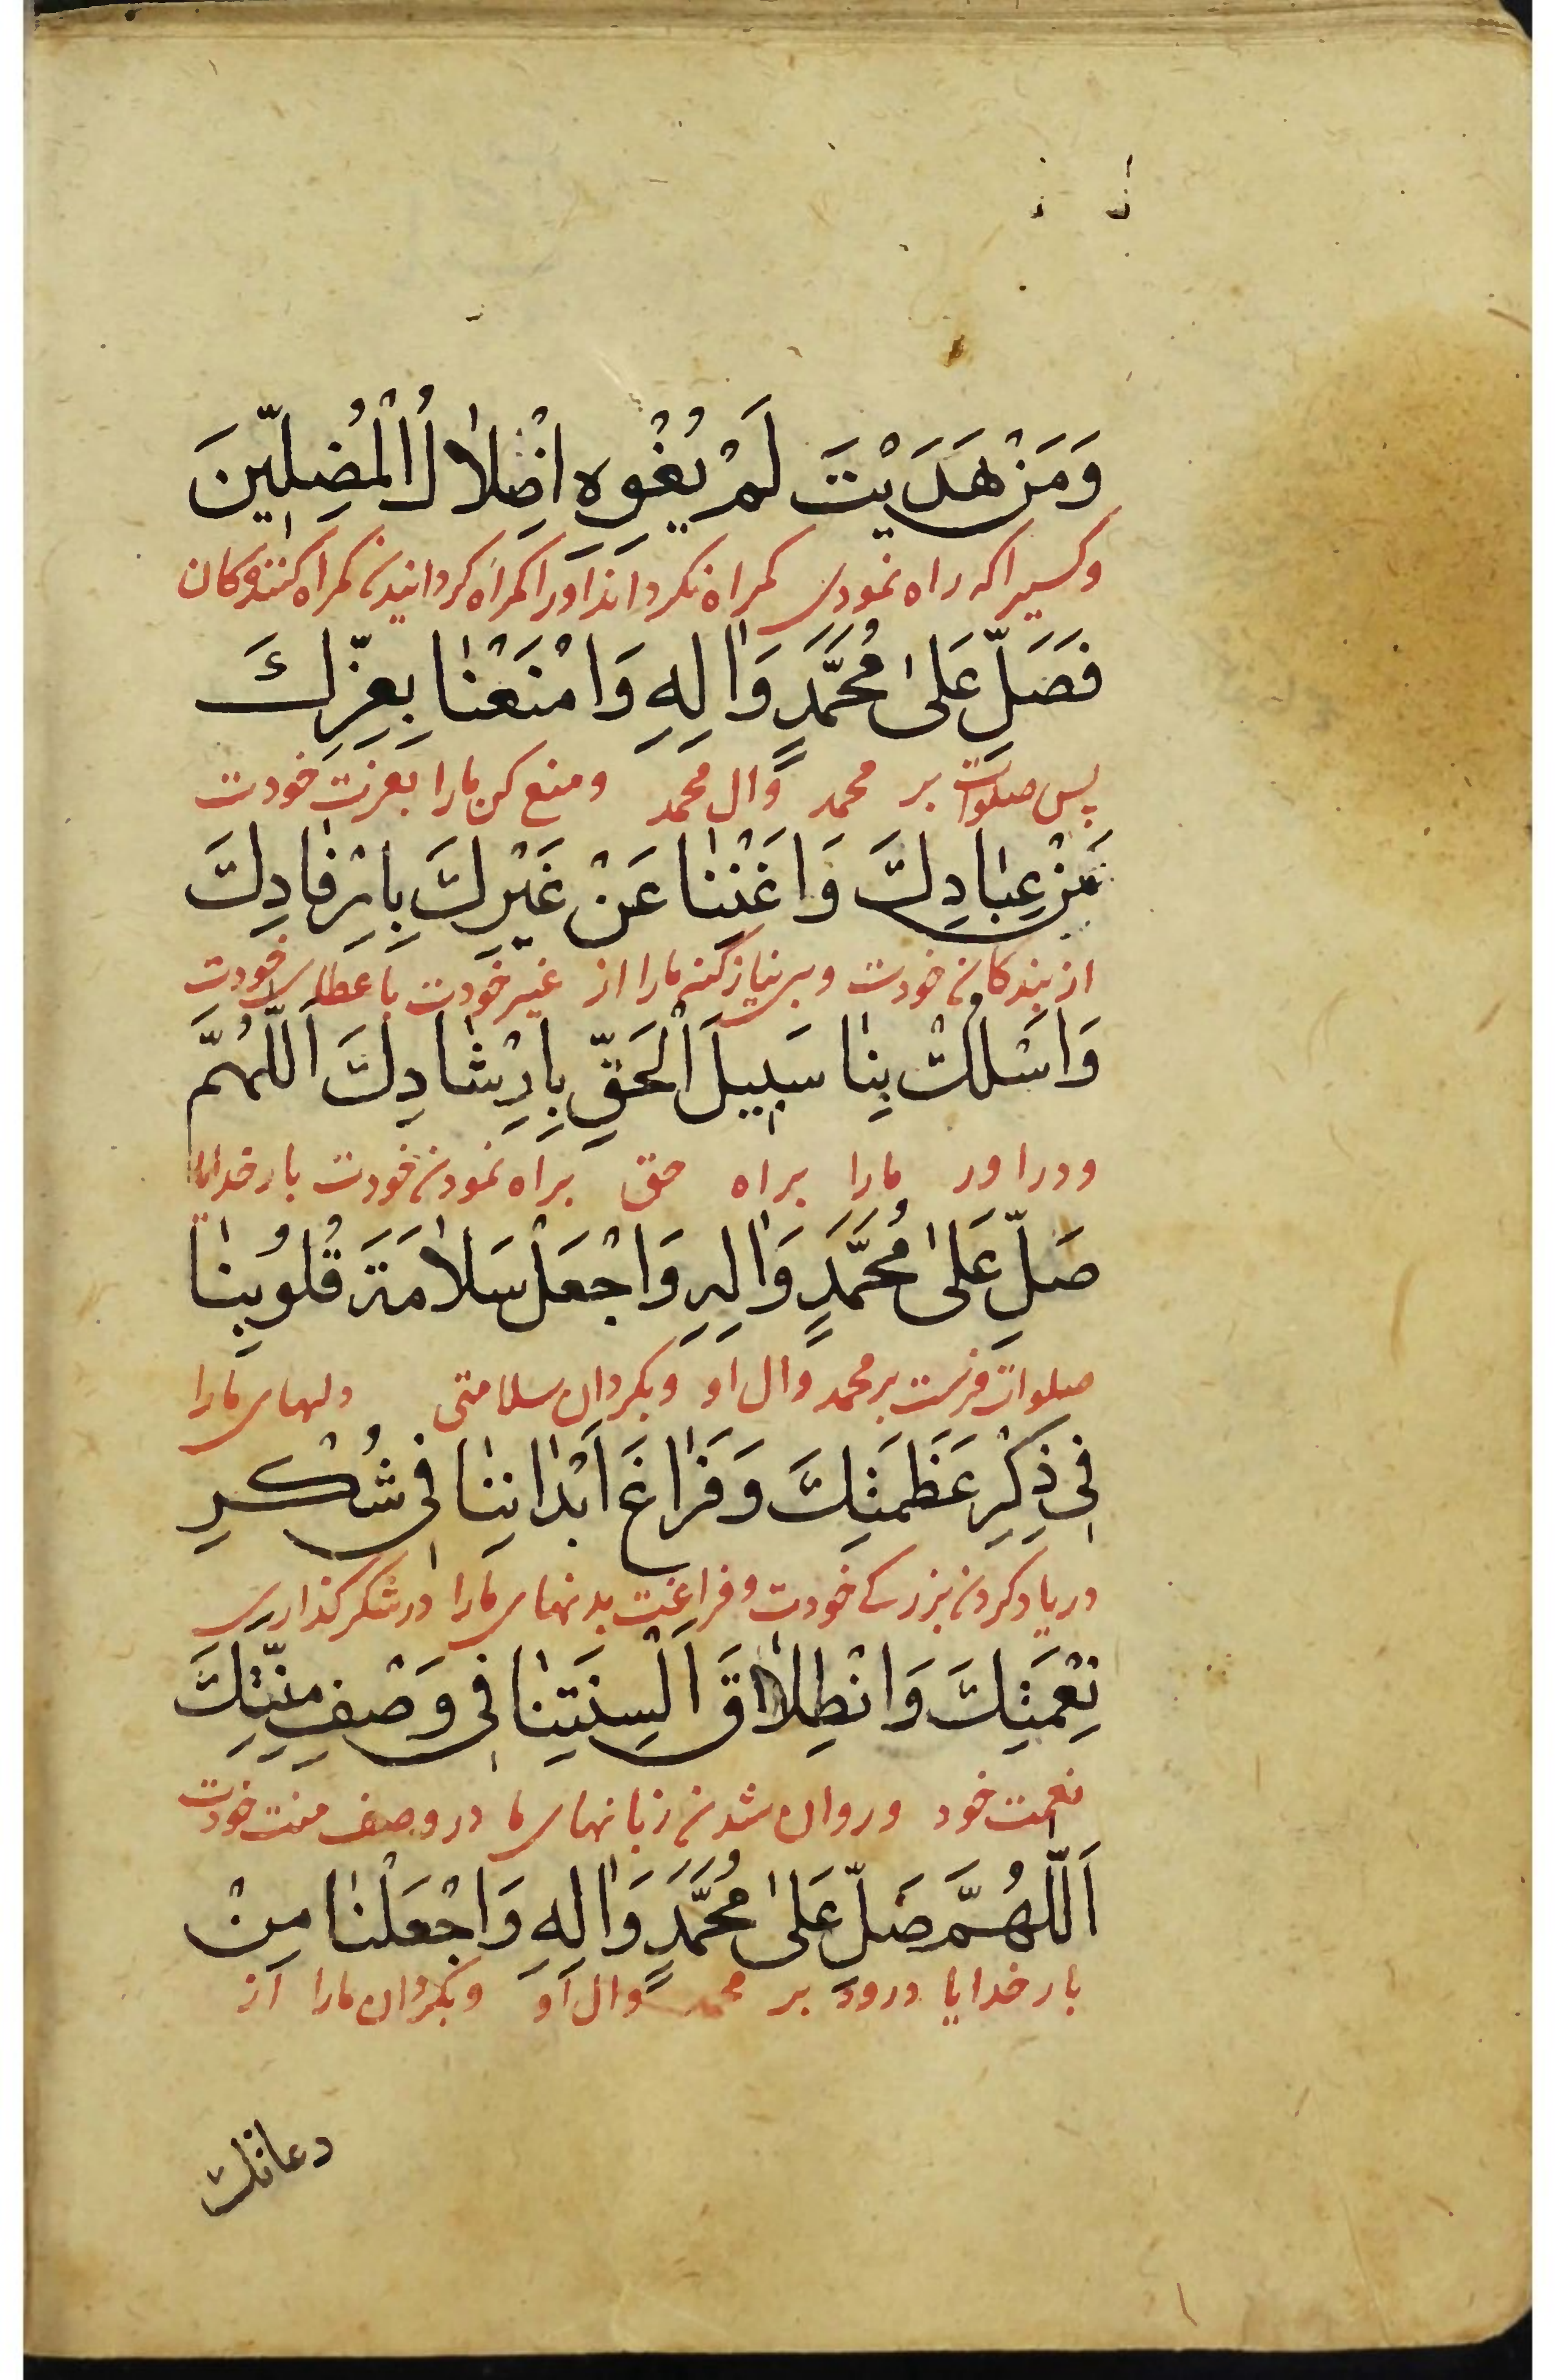 وَمَنْ هَدَيْتَ لَمْ يُغْوِهِ اِضْلٰالُ الْمُضِلّٖينَ
وکسیرا که راه نمودی کمراه نکرداند اورا کمراه کردانیدن کمراه کنندکان
فَصَلِّ عَلیٰ مُحَمَّدٍ وَاٰلِهِ وَامْنَعْنٰا بِعِزِّكَ
پس صلوات بر محمد وال محمد ومنع کن مارا بعزت خودت
مِنْ عِبٰادِكَ وَاَغْنِنٰا عَنْ غَيْرِكَ بِاِرْفٰادِكَ
از بندکان خودت وبی نیاز کن مارا از غیر خودت با عطای خودت
وَاسْلُكْ بِنٰا سَبٖيلَ الْحَقِّ بِاِرْشٰادِكَ اَللّٰهُمَّ
ودراور مارا براه حق براه نمودن خودت بارخدایا
صَلِّ عَلیٰ مُحَمَّدٍ وَاٰلِهِ وَاجْعَلْ سَلٰامَةَ قُلُوبِنٰا
صلوات فرست بر محمد وال او وبکردان سلامتی دلهای مارا
فٖي ذِكْرِ عَظَمَتِكَ وَفَرٰاغَ اَبْدٰانِنٰا فٖي شُكْرِ
در یاد کردن بزرکی خودت وفراغت بدنهای مارا در شکر کذاری
نِعْمَتِكَ وَانْطِلٰاقَ اَلْسِنَتِنٰا فٖي وَصْفِ مِنَّتِكَ
نعمت خود وروان شدن زبانهای ما در وصف منت خودت
اَللّٰهُمَّ صَلِّ عَلیٰ مُحَمَّدٍ وَاٰلِهِ وَاجْعَلْنٰا مِنْ
بارخدایا درود بر محمد وال او وبکردان مارا از
دعاتك